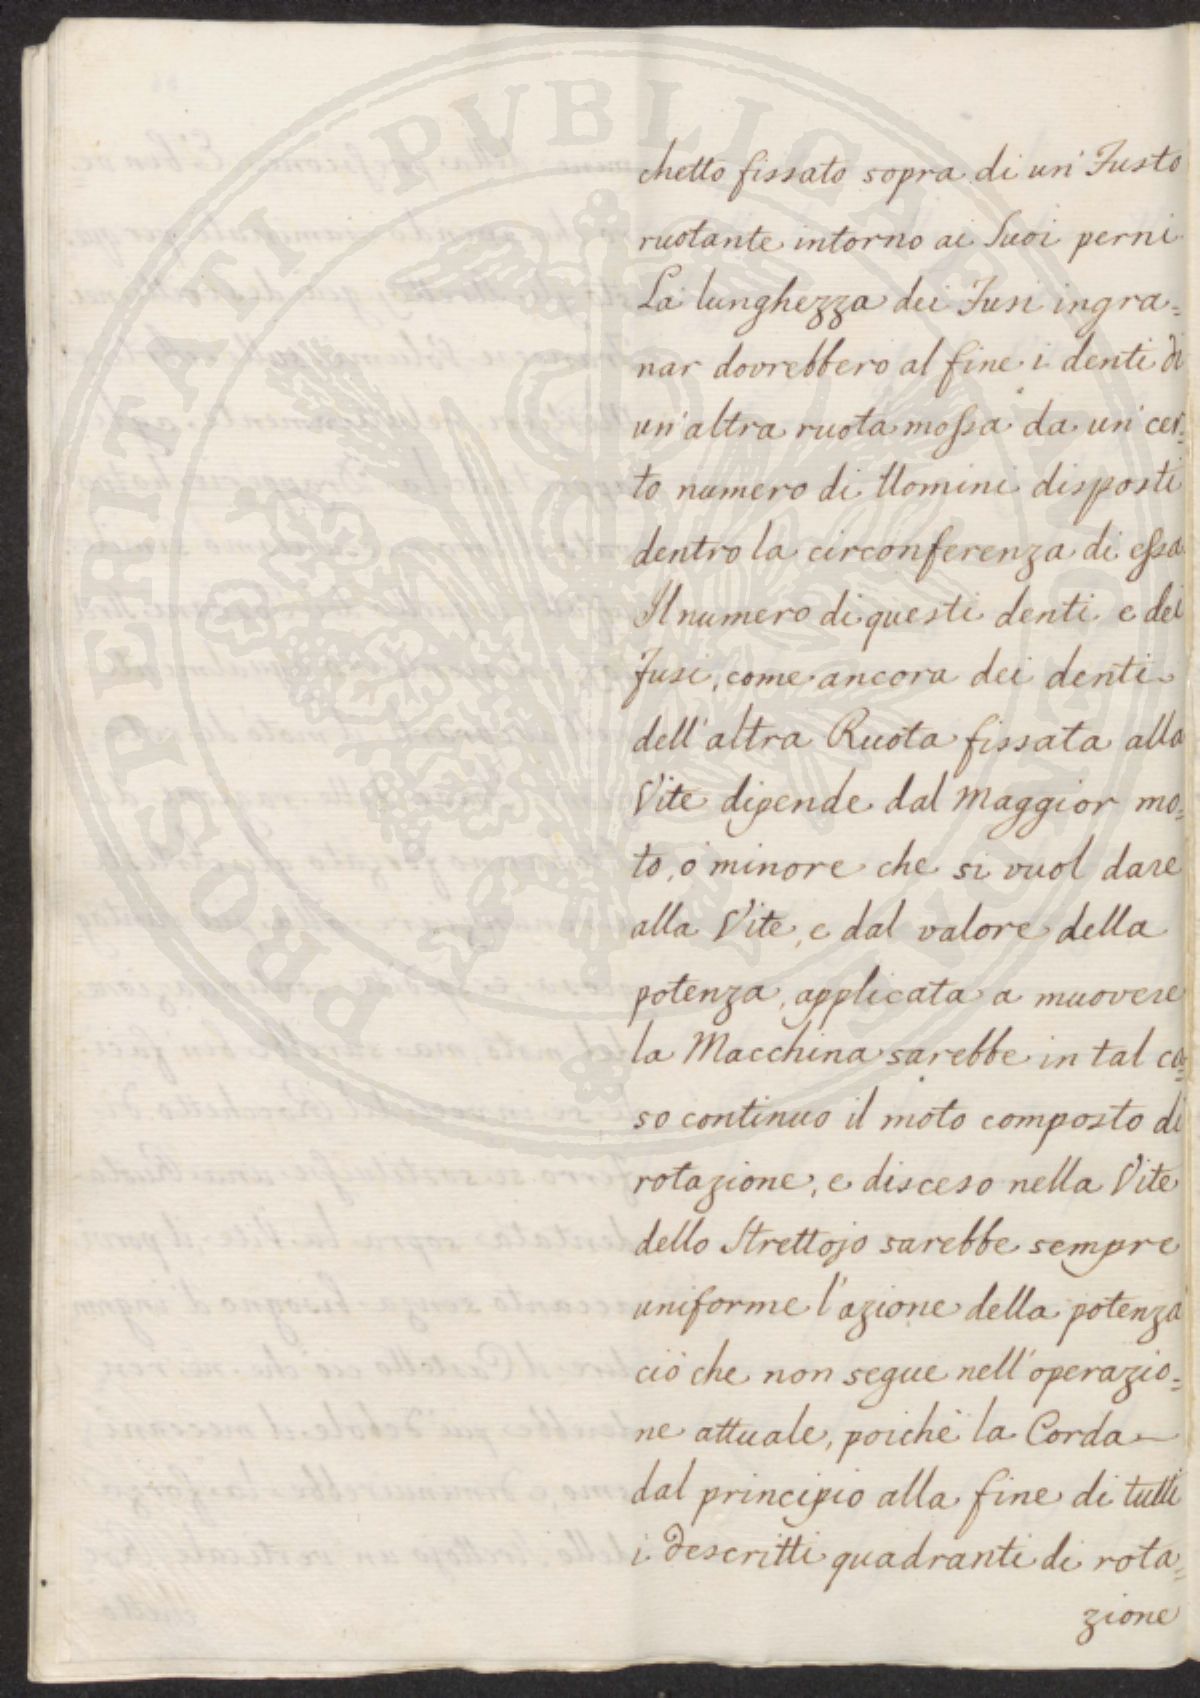 chetto fissato sopra di un' Fusto
ruotante intorno ai Suoi perni
La lunghezza dei Fusi ingra=
nar dovrebbero al fine i denti di
un' altra ruota mossa da un' cer=
to numero di Uomini disposti
dentro la circonferenza di essa
Il numero di questi denti e dei
Fusi, come ancora dei denti
dell' altra Ruota fissata alla
Vite dipende dal Maggior mo=
to, ò minore che si vuol dare
alla Vite, e dal valore della
potenza, applicata a muovere
la Macchina sarebbe in tal ca=
so continuo il moto composto di
rotazione, e disceso nella Vite
dello Strettojo sarebbe sempre
uniforme l'azione della potenza
ciò che non segue nell' operazio=
ne attuale, poichè la Corda
dal principio alla fine di tutti
i descritti quadranti di rota=
zione
PROSPERITATI PVBLICAE AVGENDAE